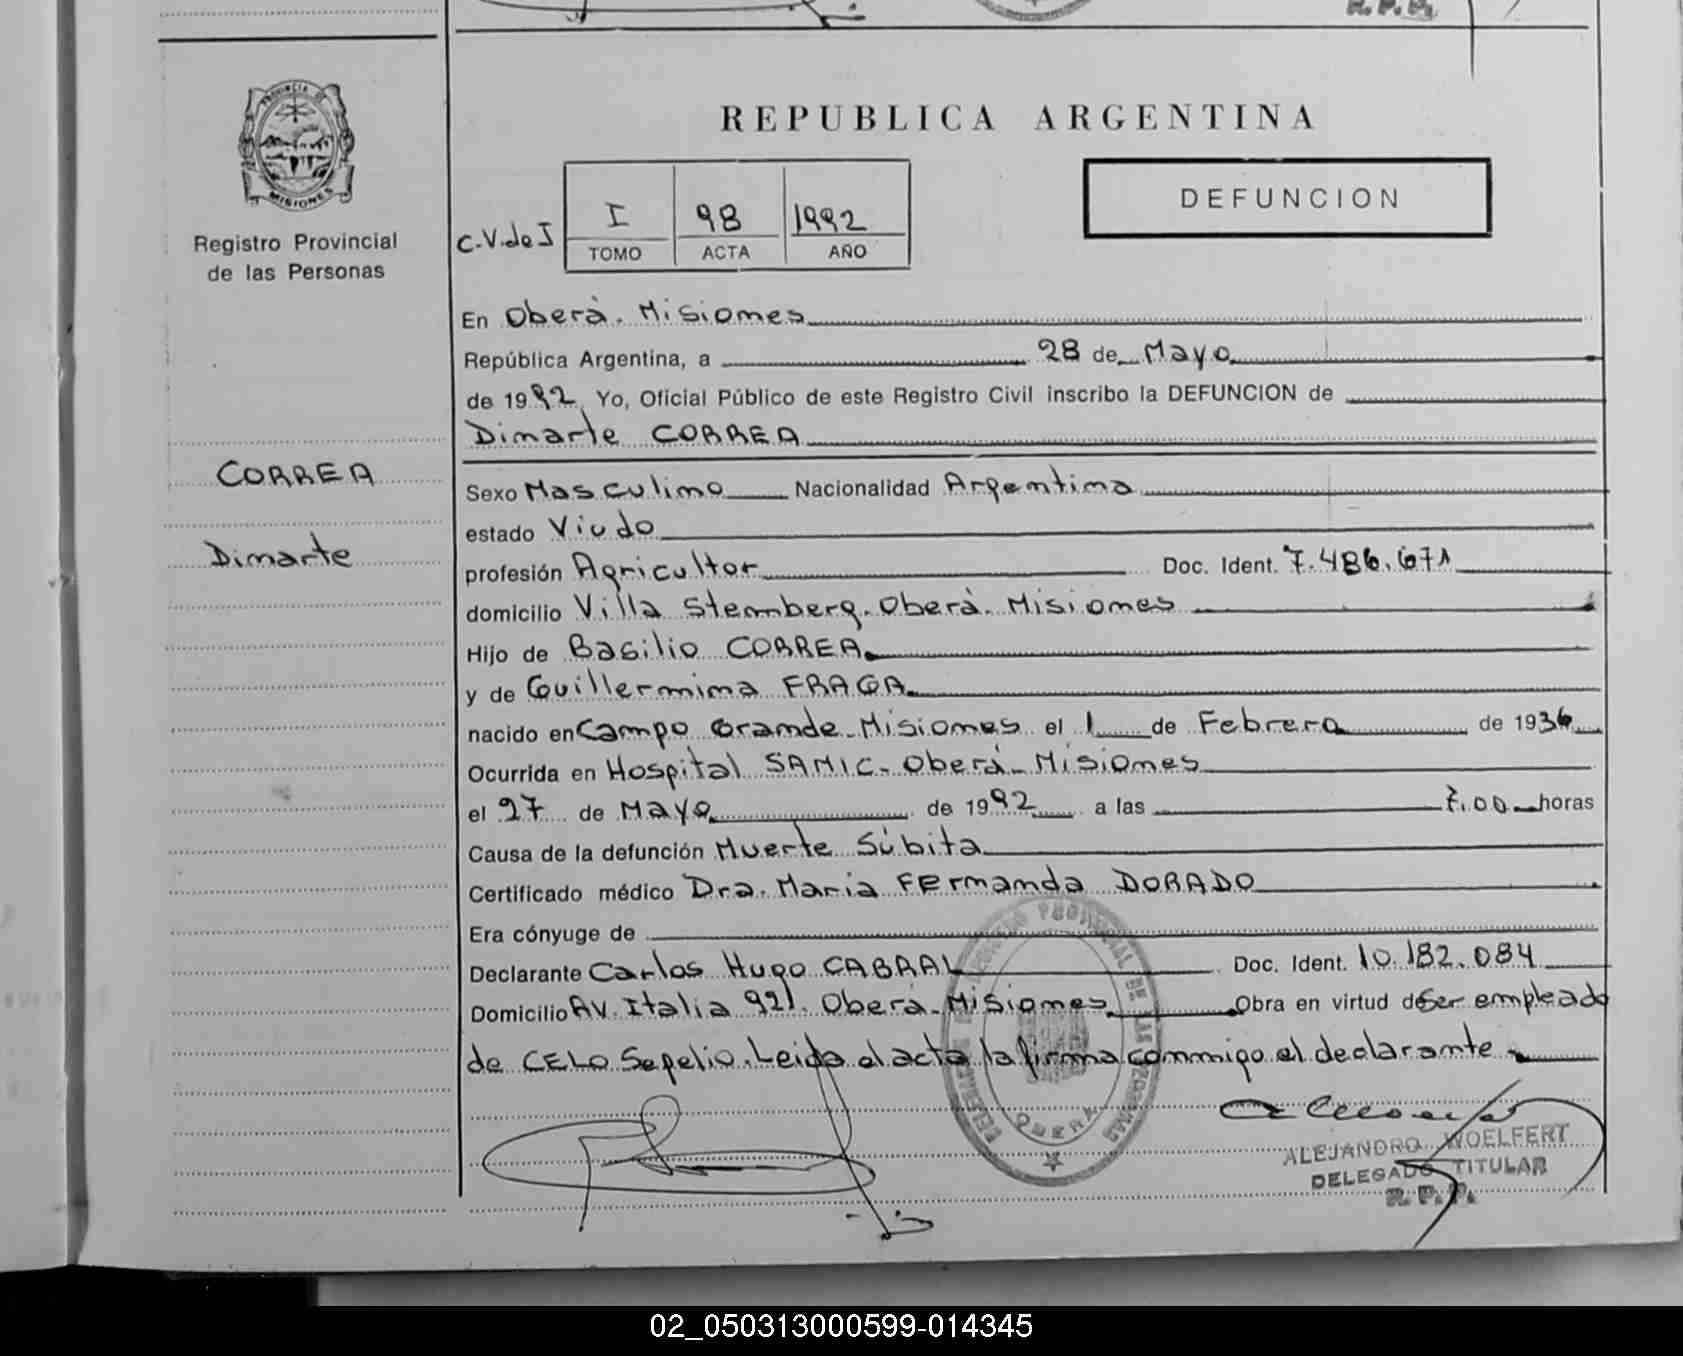 R. P. P.
PROVINCIA DE
MISIONES
Registro Provincial
de las Personas
CORREA
Dimarte
REPUBLICA ARGENTINA
DEFUNCION
C.V.de I
I 98 1992
TOMO ACTA AÑO
En Oberá. Misiones
República Argentina, a 28 de Mayo
de 1992 Yo, Oficial Público de este Registro Civil inscribo la DEFUNCION de
Dimarte CORREA
Sexo Masculino Nacionalidad Argentina
estado Viudo
profesión Agricultor Doc. Ident. 7.486.671
domicilio Villa Stemberg. Oberá. Misiones
Hijo de Basilio CORREA.
y de Guillermina FRAGA.
nacido en Campo Grande. Misiones el 1 de Febrero de 1936
Ocurrida en Hospital SAMIC. Oberá. Misiones
el 27 de Mayo de 1992 a las 7.00 horas
Causa de la defunción Muerte Súbita
Certificado médico Dra. Maria Fernanda DORADO
Era cónyuge de
Declarante Carlos Hugo CABRAL Doc. Ident. 10.182.084
Domicilio Av. Italia 921. Oberá. Misiones Obra en virtud de Ser empleado
de CELO Sepelio. Leida el acta la firma conmigo el declarante
PROVINCIAL DE LAS PERSONAS
OBERA
ALEJANDRO WOELFERT
DELEGADO TITULAR
R. P. P.
02_050313000599-014345